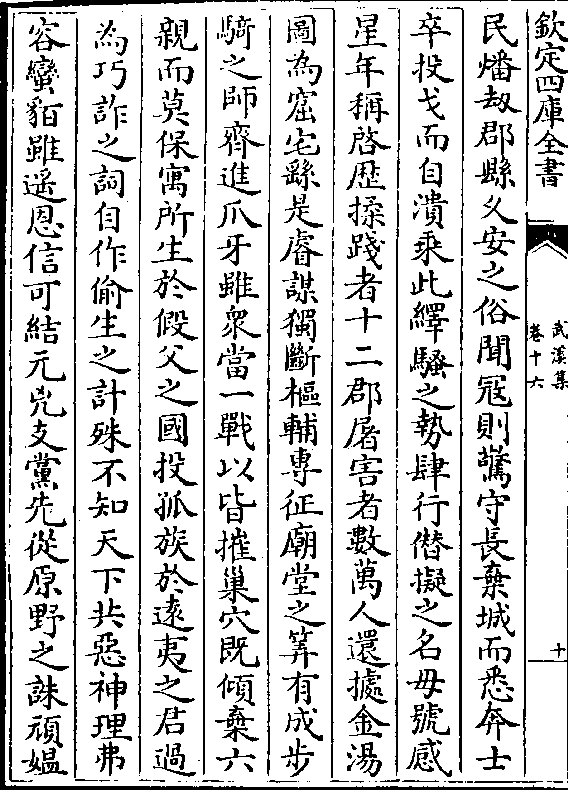 欽定四庫全書
武溪集
卷十六
十
民燔劫郡縣久安之俗聞冦則驚守長棄城而悉奔士
卒投戈而自潰乗此繹騷之勢肆行僣擬之名母號感
星年稱啓歴揉踐者十二郡屠害者數萬人還據金湯
圖為窟宅繇是睿謀獨斷樞輔専征廟堂之筭有成步
騎之師齊進爪牙雖衆當一戰以皆摧巢穴既傾棄六
親而莫保寓所生於假父之國投孤族於逺夷之君過
為巧詐之詞自作偷生之計殊不知天下共惡神理弗
容蠻貊雖遥恩信可結元兇支黨先從原野之誅頑媪